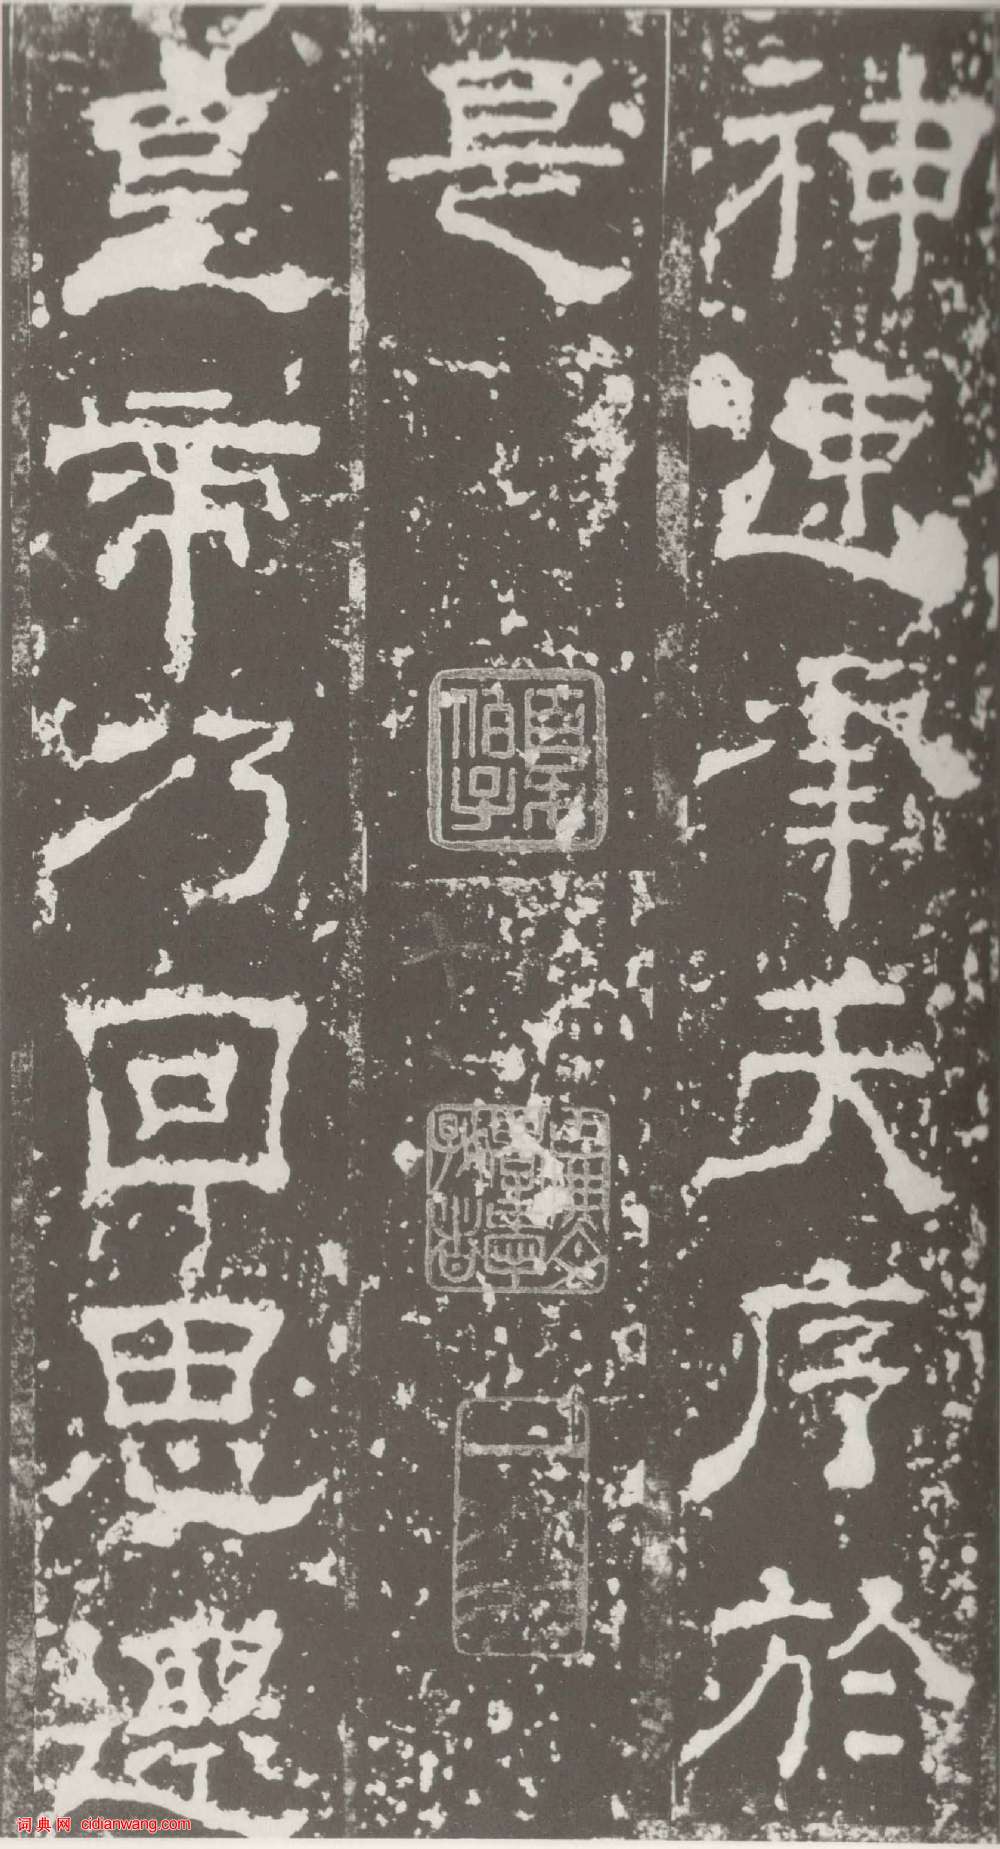 神速承天序於
是
皇帝乃回思遷
词典网 cidianwang.com